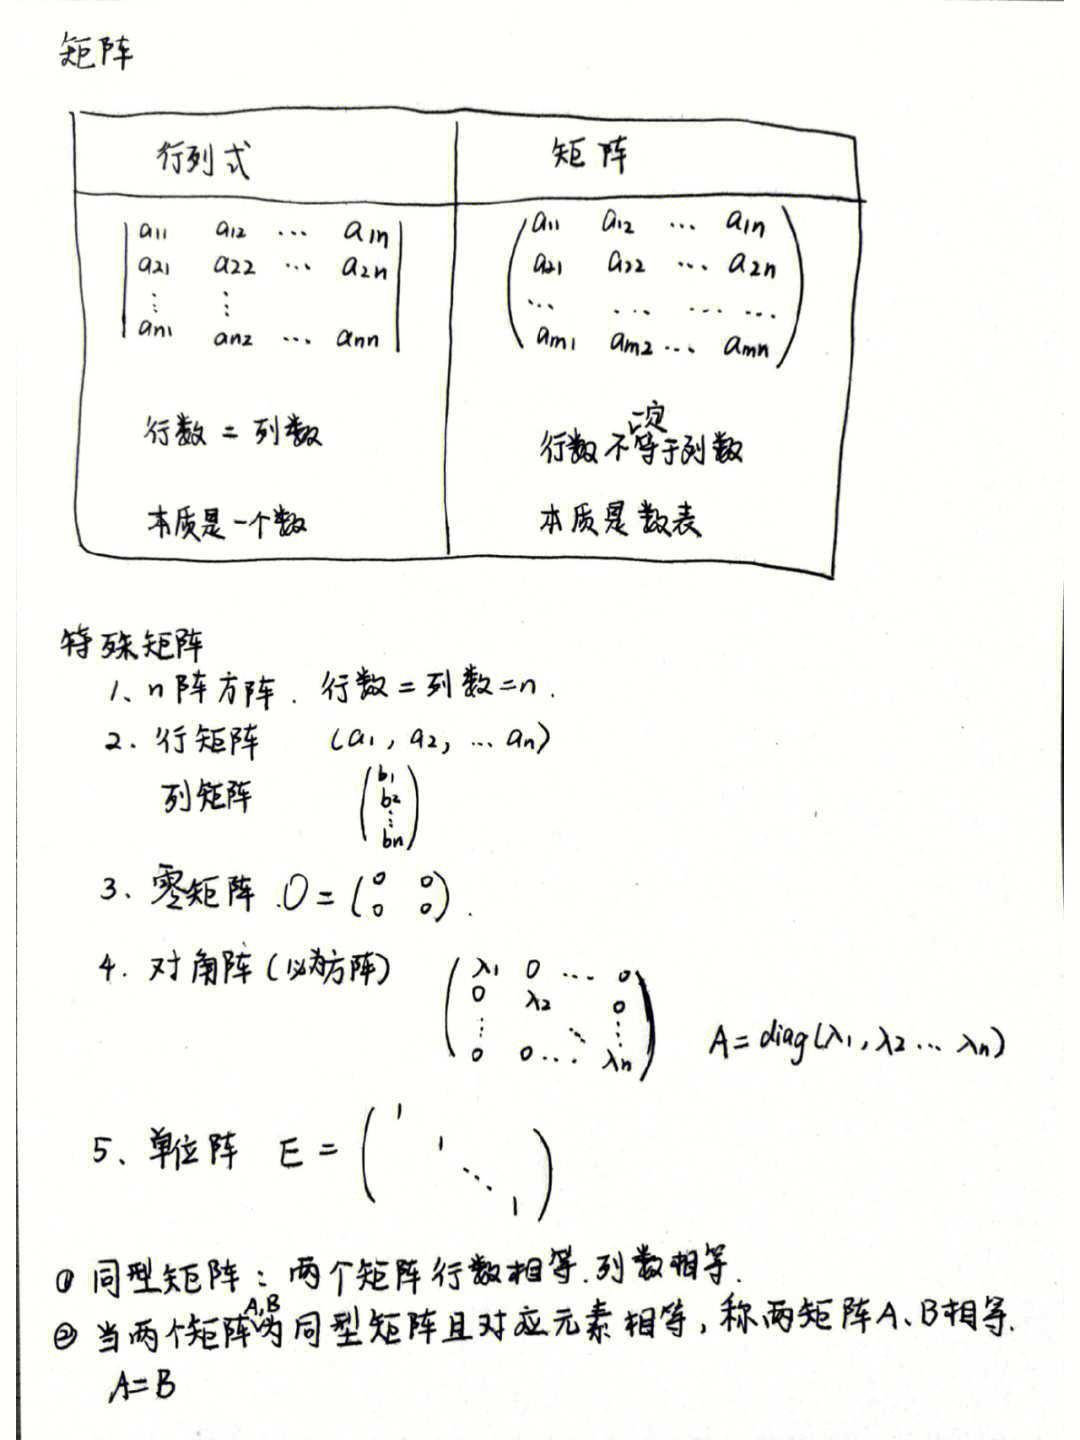 矩阵
行列式 矩阵
|a11 a12 … a1n| (a11 a12 … a1n)
|a21 a22 … a2n| (a21 a22 … a2n)
|⋮ ⋮ | (… … … …)
|an1 an2 … ann| (am1 am2 … amn)
行数 = 列数 行数不一定等于列数
本质是一个数 本质是数表
特殊矩阵
1、n阵方阵. 行数=列数=n.
2. 行矩阵 (a1, a2, … an)
列矩阵 (b1
b2
⋮
bn)
3. 零矩阵.O=(0 0
0 0).
4. 对角阵(必为方阵) (λ1 0 … 0
0 λ2 0
⋮ ⋱ ⋮
0 0 … λn) A=diag(λ1, λ2 … λn)
5、单位阵 E = (1
1
⋱
1)
① 同型矩阵: 两个矩阵行数相等.列数相等.
② 当两个矩阵A,B为同型矩阵且对应元素相等, 称两矩阵A、B相等.
A=B